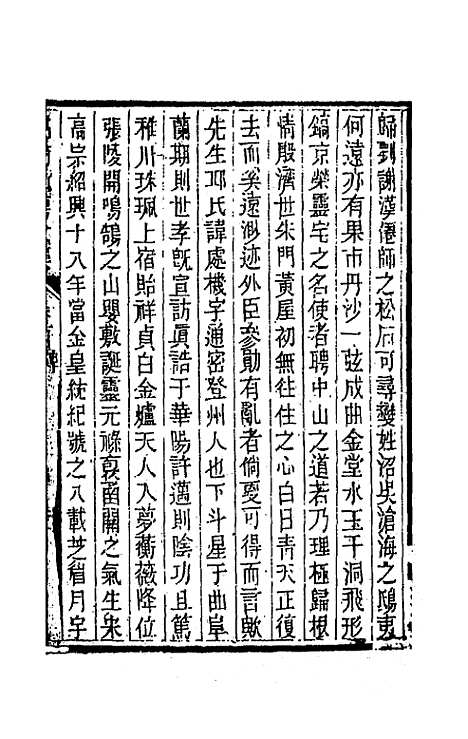 歸到謝漢偓師之松石可尋變姓沼吳滄海之鴟夷
何遠亦有果市丹沙一弦成曲金堂水玉千洞飛形
鎬京榮靈宅之名使者聘中山之道若乃理極歸根
情殷濟世朱門黃屋初無往住之心白日青天正復
去而奚遠渺迹外臣參勛有亂者倘戛可得而言歟
先生邛氏諱處機字通密登州人也下斗星于曲阜
蘭期則世孝旣宣訪眞誥于華陽許邁則陰功且篤
稚川珠珮上宿貽祥貞白金爐天人入夢蘅薇降位
張陵開鳴鵠之山嬰敷誕靈元祿裒函關之氣生朱
高宗紹興十八年當金皇統紀號之八載芝眉月宇